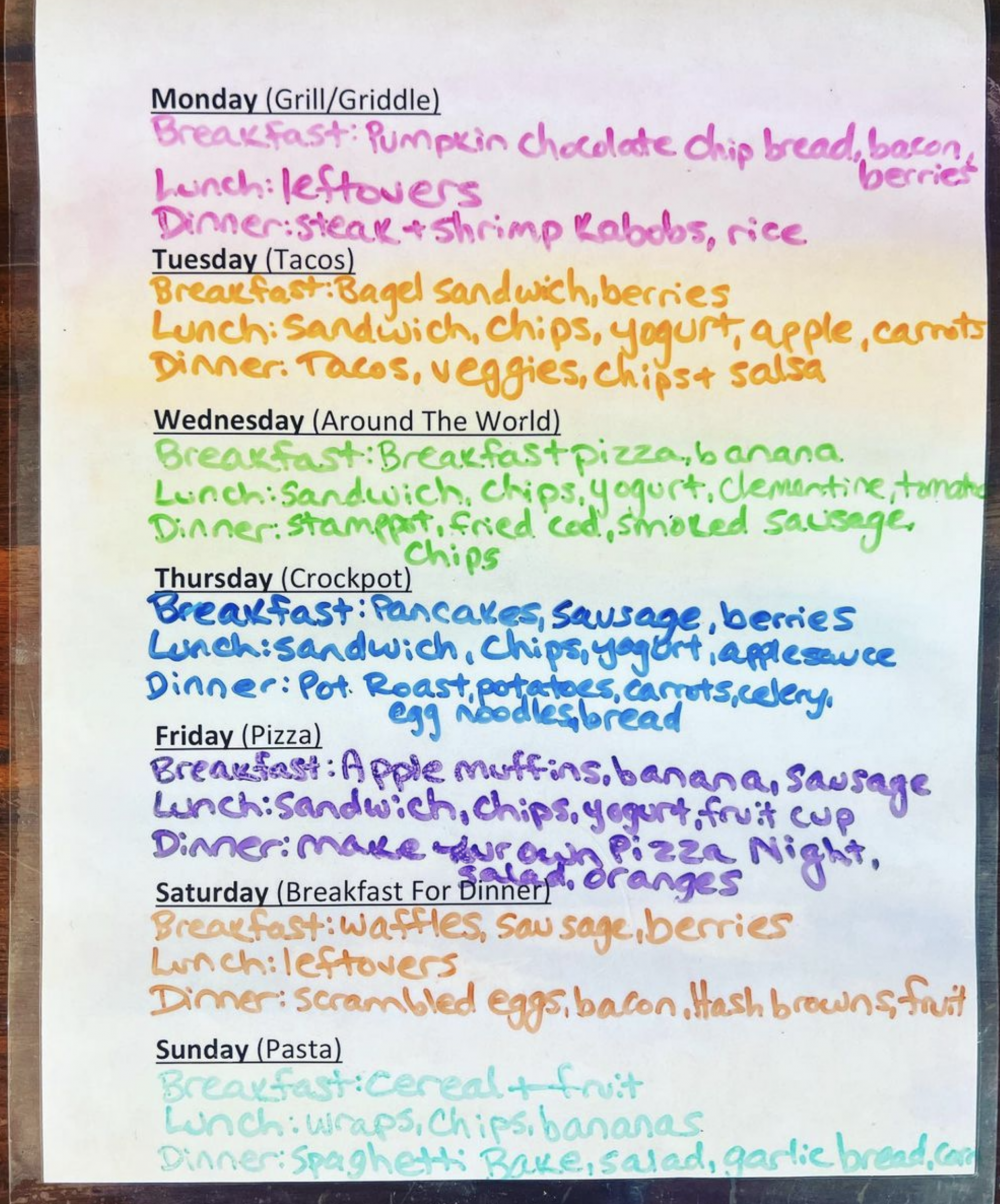 Monday (Grill/Griddle)
Breakfast: Pumpkin chocolate chip bread, bacon,
berries
Lunch: leftovers
Dinner: steak + shrimp Kabobs, rice
Tuesday (Tacos)
Breakfast: Bagel sandwich, berries
Lunch: Sandwich, chips, yogurt, apple, carrots
Dinner: Tacos, veggies, chips + salsa
Wednesday (Around The World)
Breakfast: Breakfast pizza, banana
Lunch: Sandwich, chips, yogurt, clementine, tomato
Dinner: stamppot, fried cod, smoked sausage,
chips
Thursday (Crockpot)
Breakfast: Pancakes, sausage, berries
Lunch: sandwich, chips, yogurt, applesauce
Dinner: Pot Roast, potatoes, carrots, celery,
egg noodles, bread
Friday (Pizza)
Breakfast: Apple muffins, banana, sausage
Lunch: sandwich, chips, yogurt, fruit cup
Dinner: make own Pizza Night,
salad, oranges
Saturday (Breakfast For Dinner)
Breakfast: waffles, sausage, berries
Lunch: leftovers
Dinner: scrambled eggs, bacon, Hash browns, fruit
Sunday (Pasta)
Breakfast: cereal + fruit
Lunch: wraps, chips, bananas
Dinner: Spaghetti Bake, salad, garlic bread,